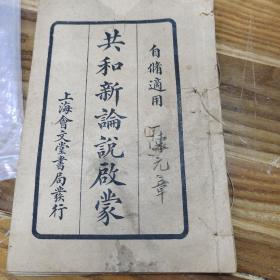 自脩適用
共和新論說啟蒙
上海會文堂書局發行
元章